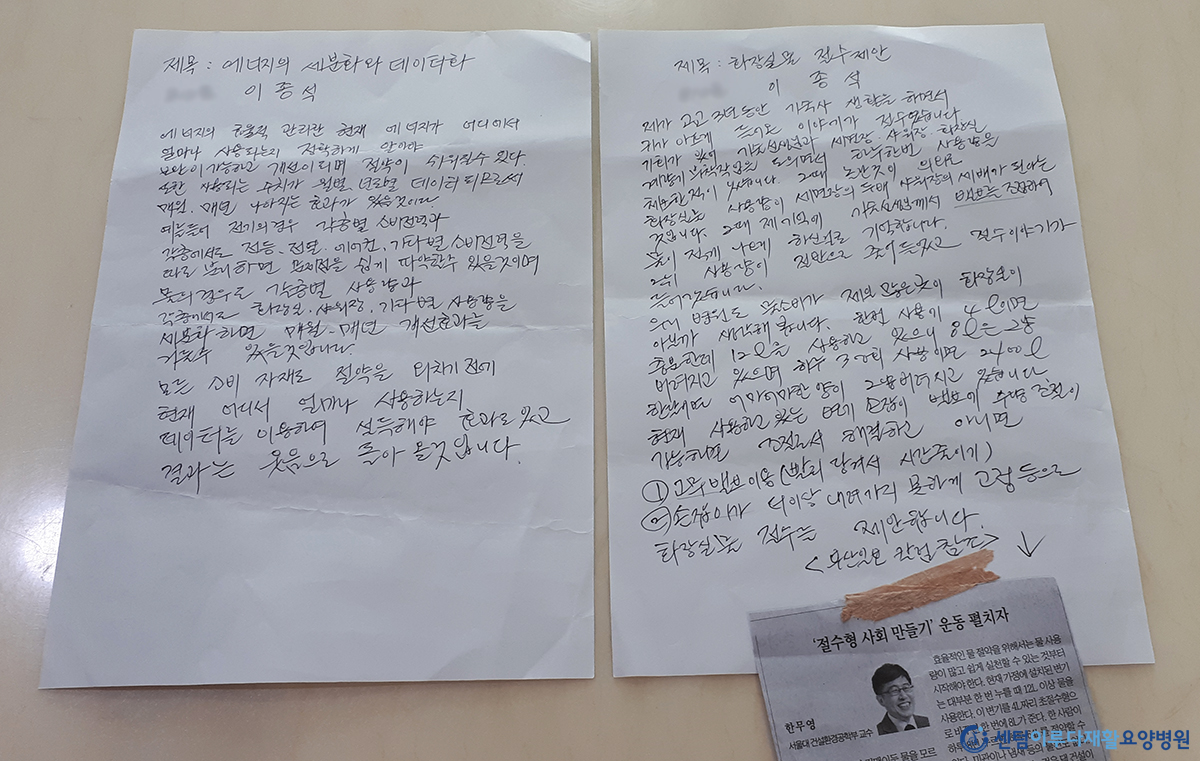 제목 : 에너지의 세분화와 데이터화
이 종 석
에너지의 효율적 관리란 현재 에너지가 어디에서
얼마나 사용되는지 정확하게 알아야
보안이 가능하고 개선이 되며 절약이 이뤄질수 있다.
또한 사용되는 수치가 월별 년도별 데이터 되므로써
매월, 매년 나아지는 효과가 있을것이다
예를들어 전기의 경우 각층별 소비전력과
각층에서도 전등, 전열, 에어컨, 기타별 소비전력을
따로 분리하면 문제점을 쉽게 파악할수 있을것이며
물의경우도 각층별 사용량과
각층에서도 화장실, 샤워장, 기타별 사용량을
세분화 하면 매월, 매년 개선효과를
거둘수 있을것입니다.
모든 소비 자재도 절약을 외치기 전에
현재 어디서 얼마나 사용하는지
데이터를 이용하여 설득해야 효과도 있고
결과는 웃음으로 돌아 올것입니다.
제목 : 화장실물 절수제안
이 종 석
제가 고교 3년동안 기숙사 생활을 하면서
귀가 아프게 들어온 이야기가 절수였습니다.
기회가 있어 기숙선생님과 세면장, 샤워장, 화장실
계량기 부착작업을 도우면서 하루한번 사용량을
체크한적이 있습니다. 그때 놀란것이 의외로
화장실물 사용량이 세면장의 두배 샤워장의 세배가 된다는
것입니다. 그때 제기억에 기숙선생님께서 밸브를 조절하여
물이 적게 나오게 하신걸로 기억합니다.
그뒤 사용량이 절반으로 줄어들었고 절수이야기가
줄어 들었습니다.
우리 병원도 물소비가 제일 많은곳이 화장실이
아닐까 생각해 봅니다. 한번 사용시 4ℓ이면
충분한데 12ℓ를 사용하고 있으니 8ℓ은 그냥
버려지고 있으며 하루 300회 사용이면 2400ℓ
한달이면 어마어마한 양이 그냥 버려지고 있습니다
현재 사용하고 있는 변기 손잡이 밸브의 수량 조절이
가능하면 조절로서 해결하고 아니면
① 고무밸브 이용 (빨리 닫혀서 시간줄이기)
② 손잡이가 더이상 내려가지 못하게 고정 등으로
화장실물 절수를 제안합니다.
<부산일보 칼럼 참조> ↓
‘절수형 사회 만들기’ 운동 펼치자
한무영
서울대 건설환경공학부 교수
효율적인 물 절약을 위해서는 물 사용
량이 많고 쉽게 실천할 수 있는 것부터
시작해야 한다. 현재 가정에 설치된 변기
는 대부분 한 번 누를 때 12L 이상 물을
사용한다. 이 변기를 4L짜리 초절수형으
로 한 번에 8L가 준다. 한 사람이
센텀이루다재활요양병원